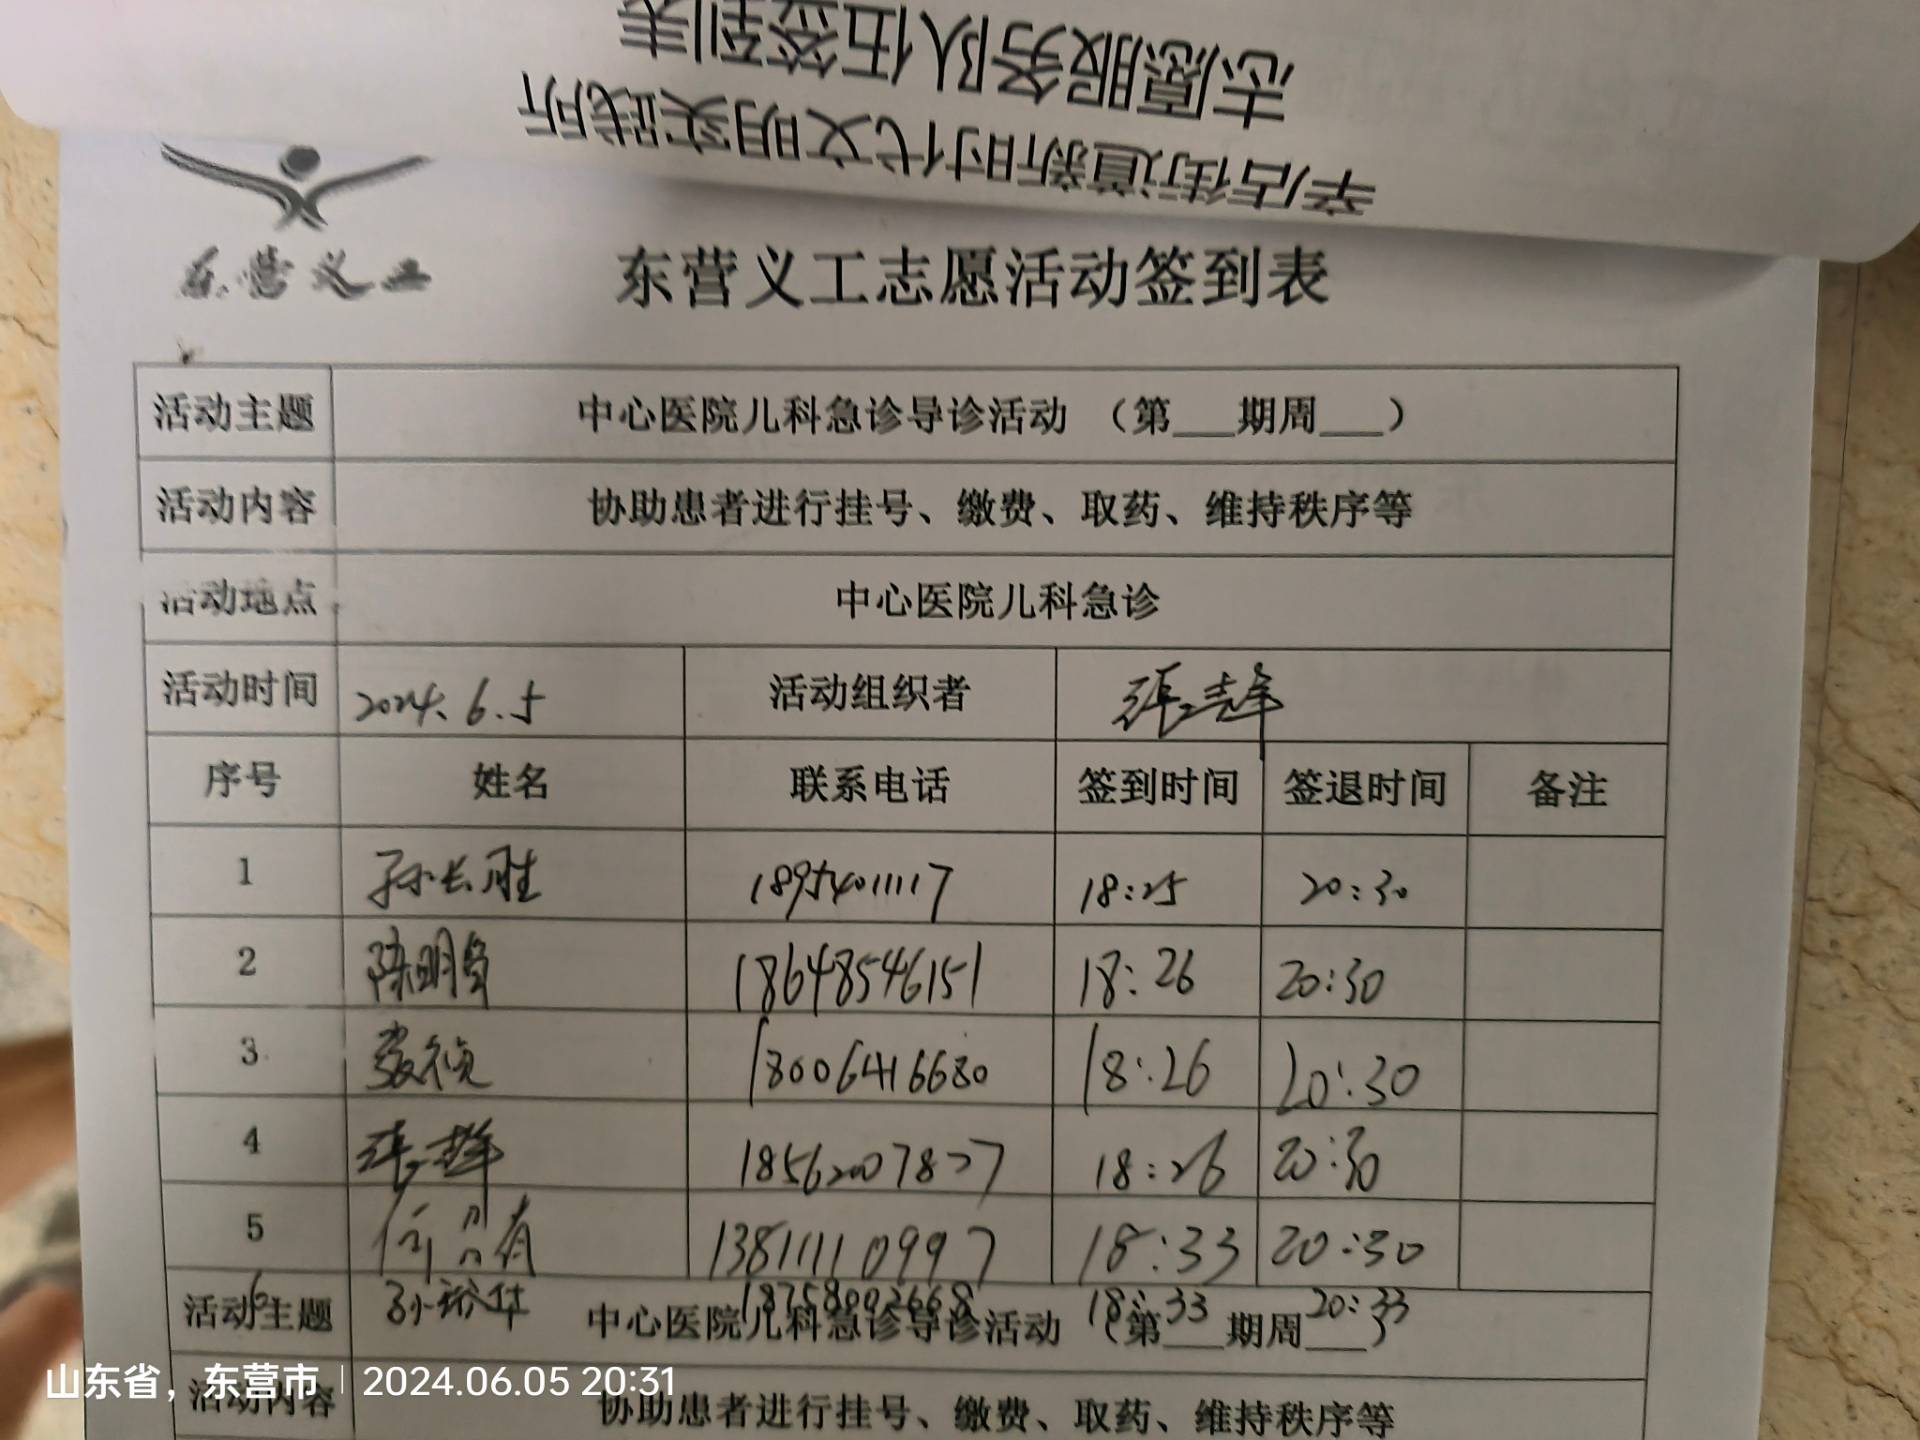 志愿服务队伍签到表
辛店街道新时代文明实践所
东营义工
东营义工志愿活动签到表
活动主题 中心医院儿科急诊导诊活动 （第___期周___）
活动内容 协助患者进行挂号、缴费、取药、维持秩序等
活动地点 中心医院儿科急诊
活动时间 2024.6.5 活动组织者
序号 姓名 联系电话 签到时间 签退时间 备注
1 孙长胜 18954011117 18:25 20:30
2 陈明贤 18648546151 18:26 20:30
3 18006416680 18:26 20:30
4 18562007827 18:26 20:30
5 13811110997 18:33 20:30
6 18758002668 18:33 20:33
活动主题 中心医院儿科急诊导诊活动 （第___期周___）
活动内容 协助患者进行挂号、缴费、取药、维持秩序等
山东省，东营市 2024.06.05 20:31